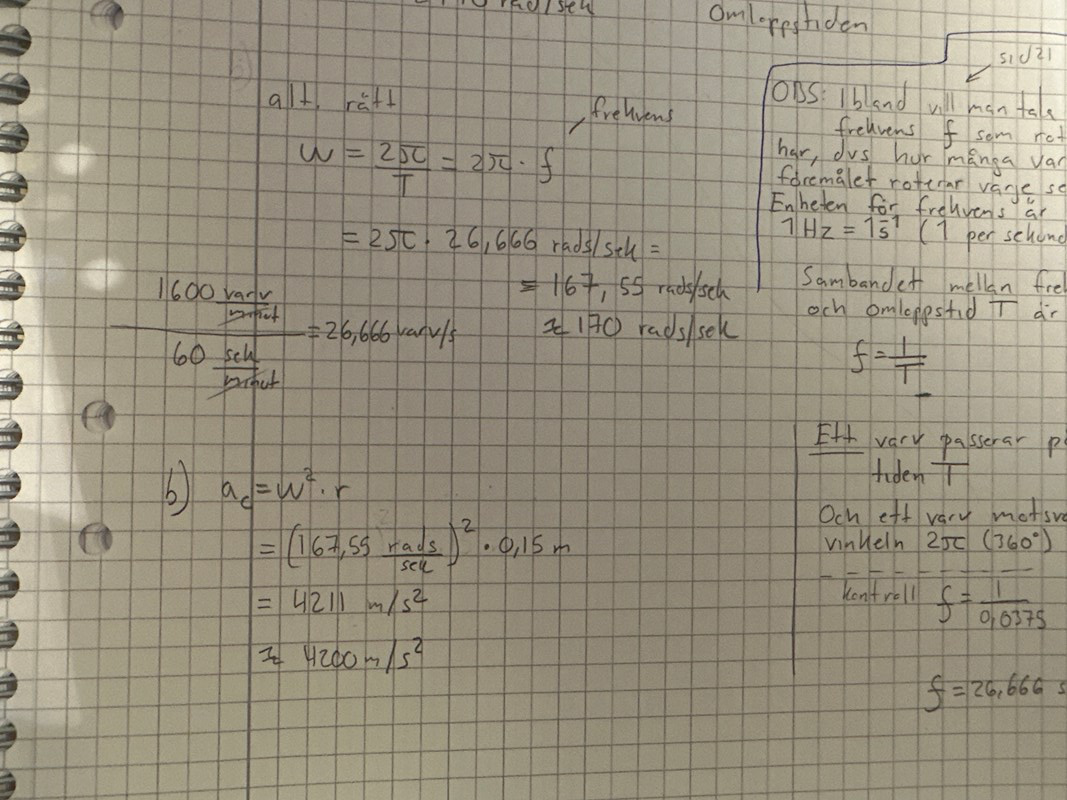 rad/sek
Omloppstiden
alt. rätt
frekvens
ω = 2π/T = 2π · f
= 2π · 26,666 rads/sek =
= 167,55 rads/sek
≈ 170 rads/sek
1600 varv/minut
60 sek/minut
= 26,666 varv/s
b) ac = ω² · r
= (167,55 rads/sek)² · 0,15 m
= 4211 m/s²
≈ 4200 m/s²
sid 21
OBS: Ibland vill man tala
frekvens f som rot
har, dvs hur många var
föremålet roterar varje se
Enheten för frekvens är
1 Hz = 1 s⁻¹ (1 per sekund
Sambandet mellan frek
och omloppstid T är
f = 1/T
Ett varv passerar på
tiden T
Och ett varv motsva
vinkeln 2π (360°)
kontroll f = 1/0,0375
f = 26,666 s